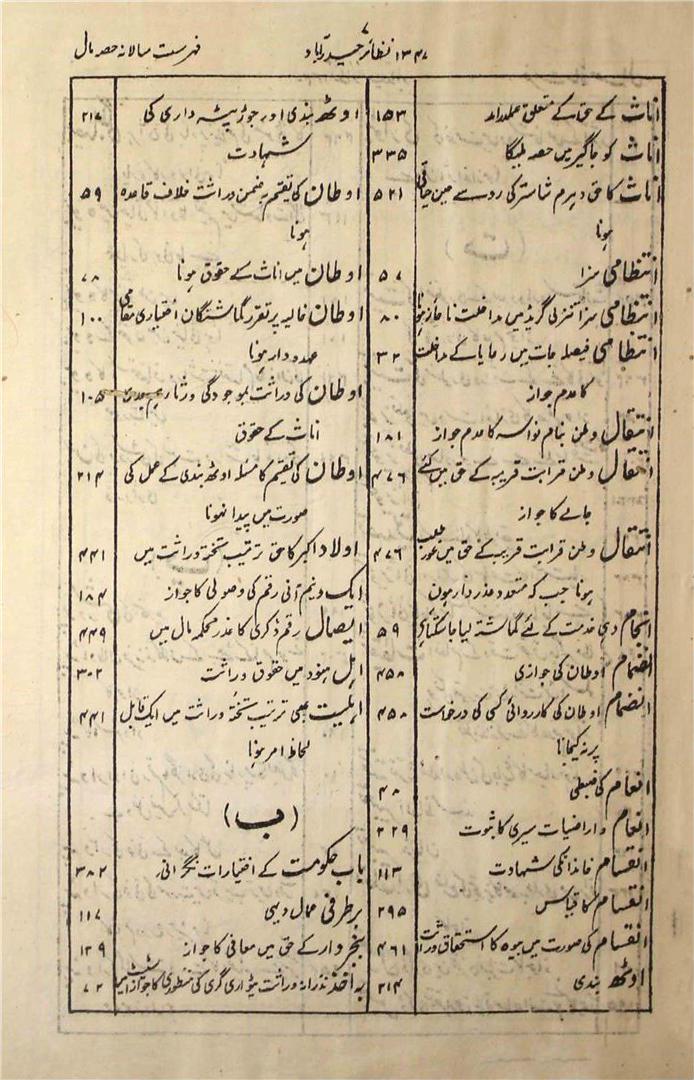 ۷
۱۳۴۷ نظائر حیدرآباد
فہرست سالانہ حصہ مال
اناث کے حق کے متعلق عملدرامد ۱۵۳
اناث کو جاگیر میں حصہ ملیگا ۳۳۵
اناث کا حق دہرم شاستر کی رو سے حین حیاتی ۵۲۱
ہونا
انتظامی سزا ۵۷
انتظامی سزا آتنزلی گریڈ میں مداخلت ناجائز ہونا ۸۰
انتظامی فیصلہ جات میں رعایا کے مداخلت ۳۲
کا عدم جواز
انتقال وطن بنام نواسہ کا عدم جواز ۱۸۱
انتقال وطن قرابت قریبہ کے حق میں کئے ۴۷۶
جانے کا جواز
انتقال وطن قرابت قریبہ کے حق میں غور طلب ۴۷۶
ہونا جب کہ متعدد عذردار ہوں
انجام دہی خدمت کے لئے گماشتہ لیا جا سکتا ہے ۵۹
انضمام اوطان کی جوازی ۴۵۸
انضمام اوطان کی کارروائی کسی کی درخواست ۴۵۸
پر نہ کیجانا
انعام کی ضبطی ۴۸
انعام و اراضیات سیری کا ثبوت ۲۲۹
انقسام خاندانکی شہادت ۱۱۳
انقسام کا قیاس ۲۹۵
انقسام کی صورت میں بیوہ کا استحقاق وراثت ۴۶۱
اوٹھ بندی ۲۱۴
اوٹھ بندی اور جوڑ پیشہ داری کی ۲۱۷
شہادت
اوطان کی تقیم بہ ضمن وراثت خلاف قاعدہ ۵۹
ہونا
اوطان میں اناث کے حقوق ہونا ۷۸
اوطان خالیہ پر تقرر گماشتگان اختیاری مقامی ۱۰۰
عہدہ دار ہونا
اوطان کی وراثت بموجودگی ورثاء ہم جدی ۱۰۵
اناث کے حقوق
اوطان کی تقیم کا مسئلہ اوٹھ بندی کے عمل کی ۲۱۴
صورت میں پیدا نہونا
اولاد اکبر کا حق ترتیب تختہ وراثت میں ۴۴۱
ایک و نیم آنی رقم کی وصولی کا جواز ۱۸۴
ایصال رقم ڈگری کا عذر محکمہ مال میں ۴۴۹
اہل ہنود میں حقوق وراثت ۳۰۲
اہلیت بھی ترتیب تختۂ وراثت میں ایک قابل ۴۴۱
لحاظ امر ہونا
(ب)
باب حکومت کے اختیارات نگرانی ۳۸۲
برطرفی عمال دیہی ۱۱۷
بنجر دار کے حق میں معافی کا جواز ۱۲۹
بہ اخذ نذرانہ وراثت پٹواری گری کی منظوری کا جواز ۷۲